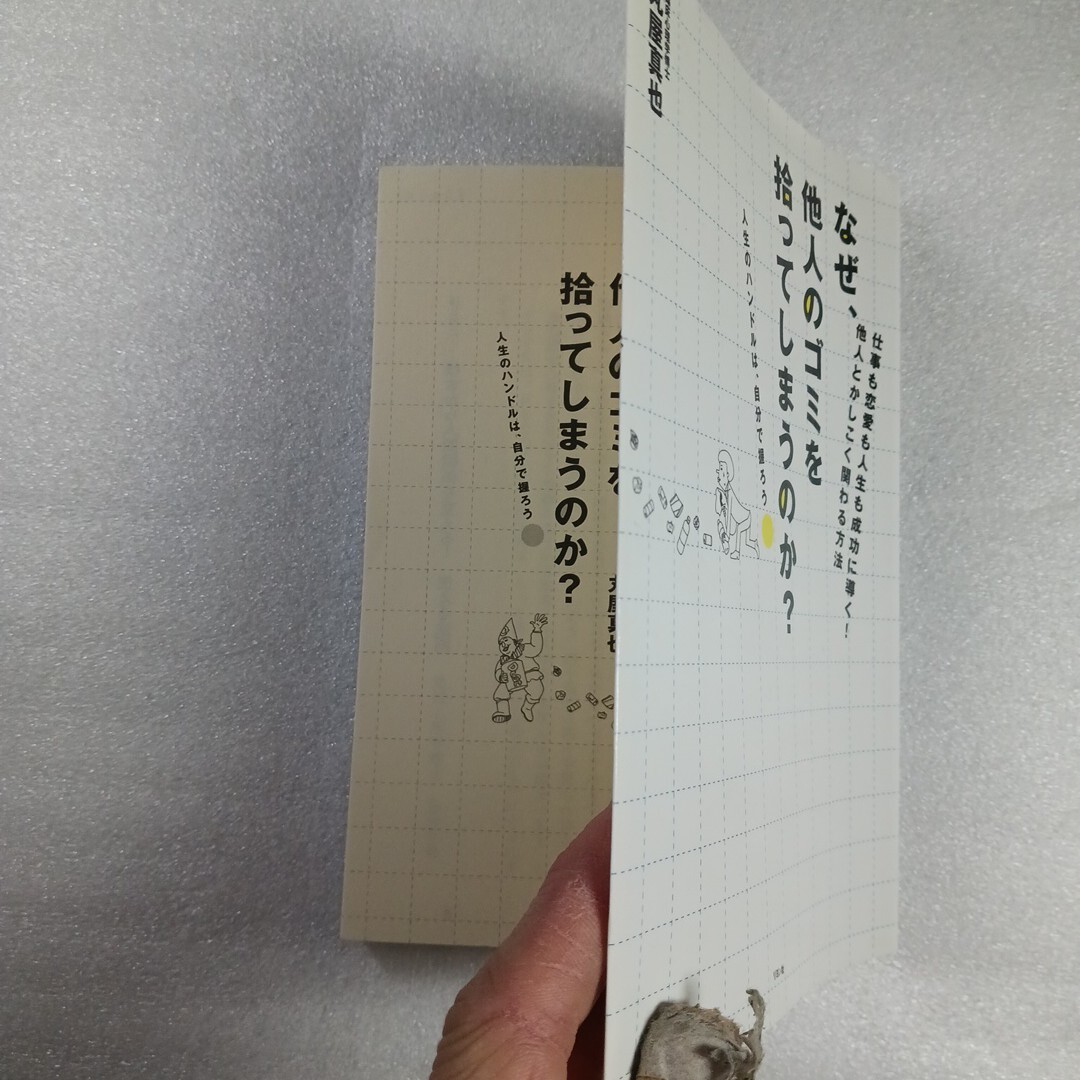 仕事も恋愛も人生も成功に導く！
他人とかしこく関わる方法
なぜ、
他人のゴミを
拾ってしまうのか？
人生のハンドルは、自分で握ろう
真也
他人のゴミを
拾ってしまうのか？
人生のハンドルは、自分で握ろう
丸屋真也